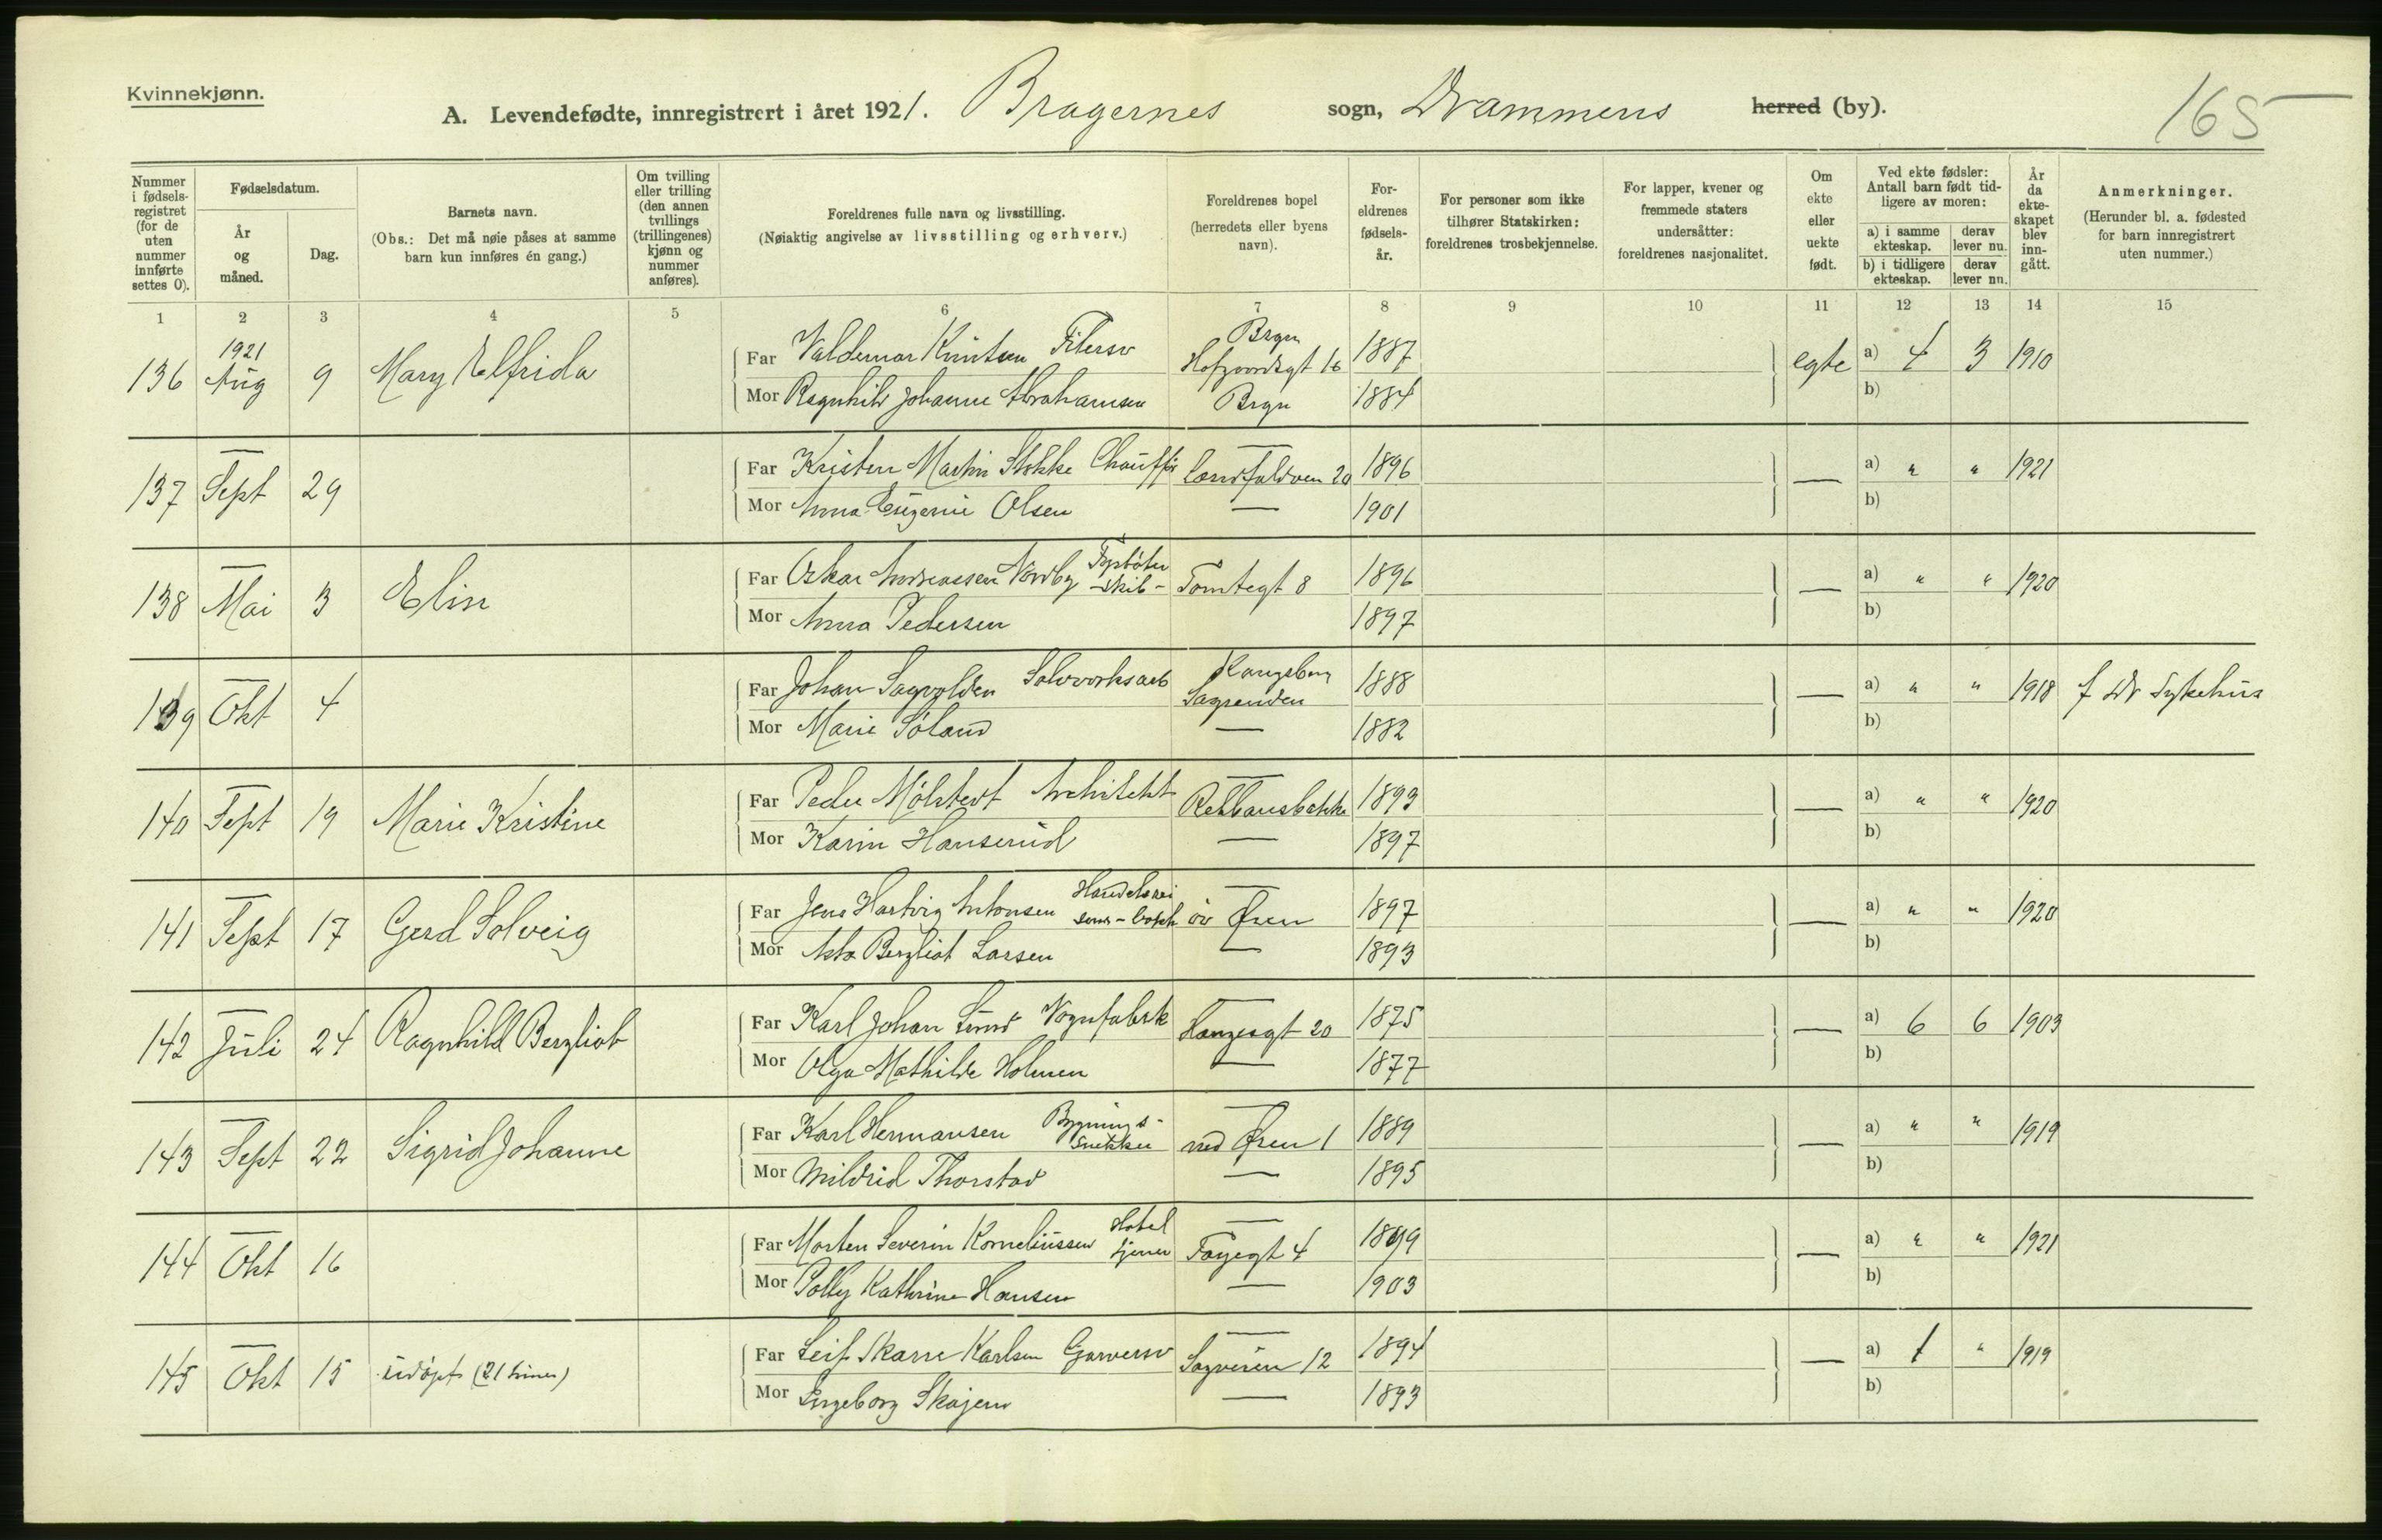 Kvinnekjønn.
A. Levendefødte, innregistrert i året 1921. Bragernes sogn, Drammens herred (by).
165
Nummer i fødselsregistret (for de uten nummer innførte settes 0).
Fødselsdatum.
År og måned.
Dag.
Barnets navn.
(Obs.: Det må nøie påses at samme barn kun innføres én gang.)
Om tvilling eller trilling (den annen tvillings (trillingenes) kjønn og nummer anføres).
Foreldrenes fulle navn og livsstilling.
(Nøiaktig angivelse av livsstilling og erhverv.)
Foreldrenes bopel
(herredets eller byens navn).
For-eldrenes fødsels-år.
For personer som ikke tilhører Statskirken: foreldrenes trosbekjennelse.
For lapper, kvener og fremmede staters undersåtter: foreldrenes nasjonalitet.
Om ekte eller uekte født.
Ved ekte fødsler: Antall barn født tidligere av moren:
a) i samme ekteskap.
derav lever nu.
b) i tidligere ekteskap.
derav lever nu.
År da ekteskapet blev inngått.
Anmerkninger.
(Herunder bl. a. fødested for barn innregistrert uten nummer.)
1 2 3 4 5 6 7 8 9 10 11 12 13 14 15
136 1921 Aug 9 Mary Elfrida
Far Valdemar Knutsen Filersv Brgn 1887 egte a) 4 3 1910
Mor Ragnhild Johanne Abrahamsen Brgn 1884 b)
137 Sept 29
Far Kristen Martin Stokke Chauffør 20 1896 — a) " " 1921
Mor Anna Eugenie Olsen — 1901 b)
138 Mai 3 Elin
Far Oskar Andreassen Nordby Fyrbøter skib- Tomtegt 8 1896 — a) " " 1920
Mor Anna Pedersen 1897 b)
139 Okt 4
Far Johan Sagvolden Sølvverksarb Kongsberg Sagrenden 1888 — a) " " 1918 f Dr Sykehus
Mor Marie Søland — 1882 b)
140 Sept 19 Marie Kristine
Far Peder Mølstedt Architekt 1893 — a) " " 1920
Mor Karin Hanserud — 1897 b)
141 Sept 17 Gerd Solveig
Far Jens Hartvig Antonsen Handelsrei øv Øren 1897 — a) " " 1920
Mor Asta Bergliot Larsen — 1893 b)
142 Juli 24 Ragnhild Bergliot
Far Karl Johan Lund Vognfabrik Haugesgt 20 1875 — a) 6 6 1903
Mor Olga Mathilde Holmen — 1877 b)
143 Sept 22 Sigrid Johanne
Far Karl Hermansen Bygnings- snekker ned Øren 1 1889 — a) " " 1919
Mor Mildrid Thorstad — 1895 b)
144 Okt 16
Far Morten Severin Korneliussen Hotel tjener Tollegt 4 1899 — a) " " 1921
Mor Polly Kathrine Hansen — 1903 b)
145 Okt 15 udøpt (21 timer)
Far Leif Skarre Karlsen Garversv Sagveien 12 1894 — a) 1 " 1919
Mor Ingeborg Skajem — 1893 b)